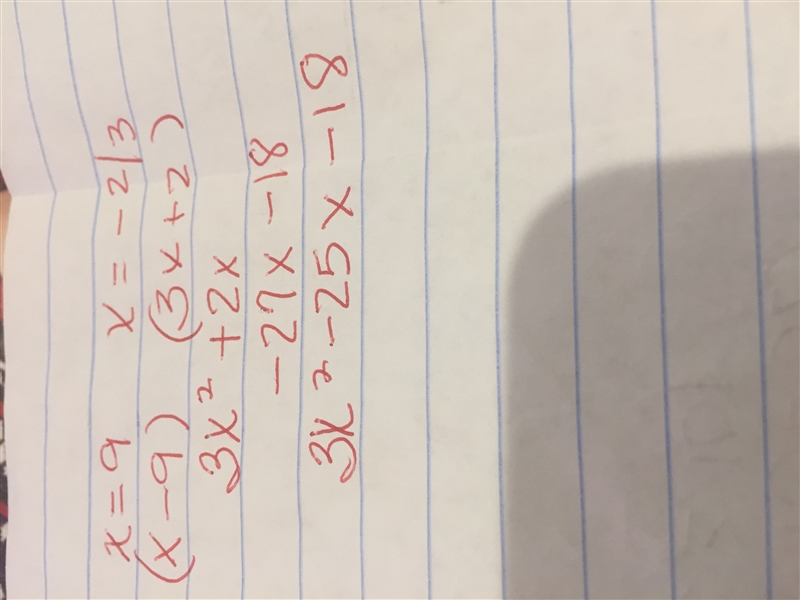 x = 9 x = -2/3
(x - 9) (3x + 2)
3x² + 2x
-27x - 18
3x² - 25x - 18